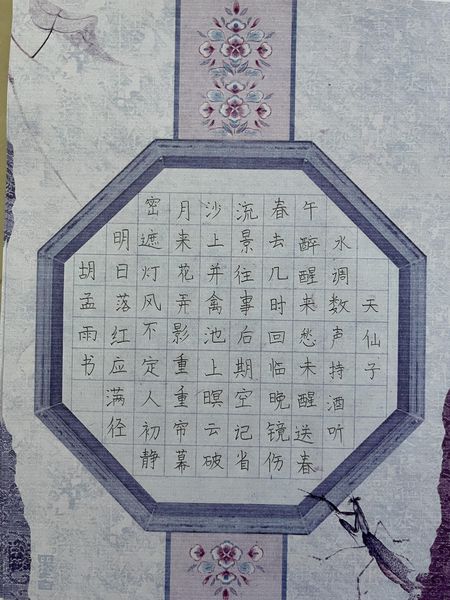 天仙子
水调数声持酒听
午醉醒来愁未醒送春
春去几时回临晚镜伤
流景往事后期空记省
沙上并禽池上暝云破
月来花弄影重重帘幕
密遮灯风不定人初静
明日落红应满径
胡孟雨书